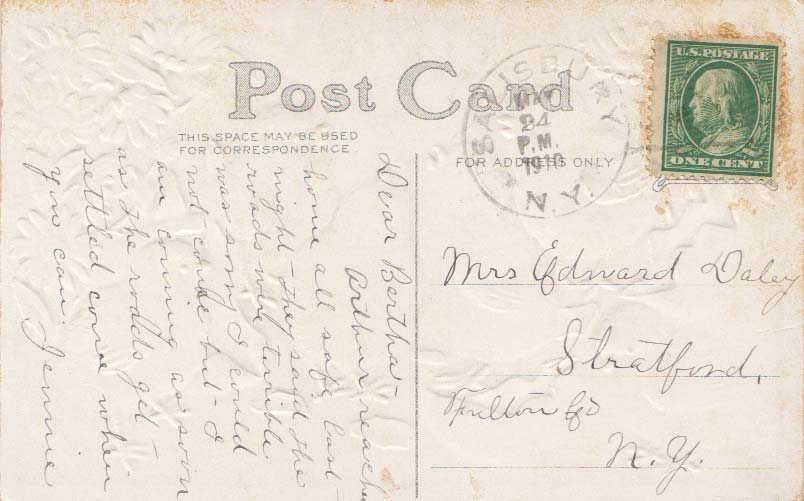 Post Card
THIS SPACE MAY BE USED
FOR CORRESPONDENCE
FOR ADDRESS ONLY
SALISBURY
24
P.M.
1910
N.Y.
U.S. POSTAGE
ONE CENT
Dear Bertha-
Arthur reached
home all safe last
night - they said the
roads were terrible
was sorry I could
not come but - I
am coming as soon
as the roads get -
settled come when
you can.
Jennie
Mrs Edward Daley
Stratford,
Fulton Co
N.Y.